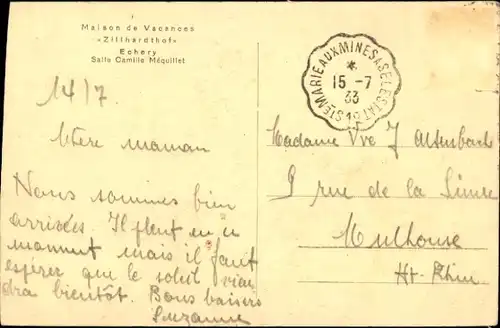 Maison de Vacances
«Zillhardthof»
Echery
Salle Camille Méquillet
STE MARIE AUX MINES A SELESTAT
15 -7
33
14/7
Chère maman
Nous sommes bien
arrivées. Il pleut en ce
moment mais il faut
espérer que le soleil vien
dra bientôt. Bons baisers
Suzanne
Madame Vve J
9 rue de la
Mulhouse
Ht-Rhin